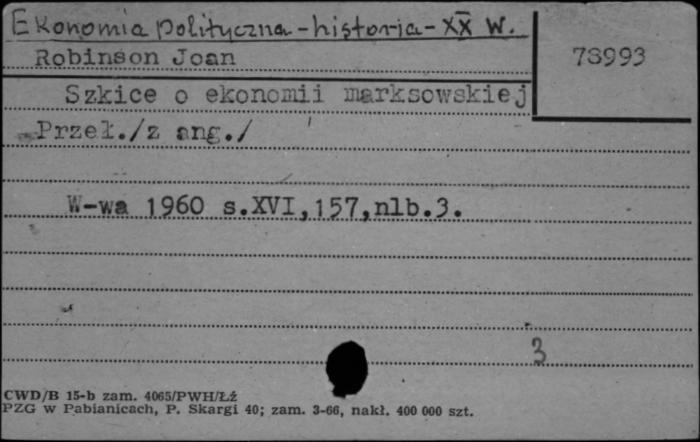 Ekonomia polityczna - historia - XX w.
Robinson Joan
78993
Szkice o ekonomii marksowskiej
Przeł./z ang./
W-wa 1960 s.XVI,157,nlb.3.
3
CWD/B 15-b zam. 4065/PWH/Łź
PZG w Pabianicach, P. Skargi 40; zam. 3-66, nakł. 400 000 szt.